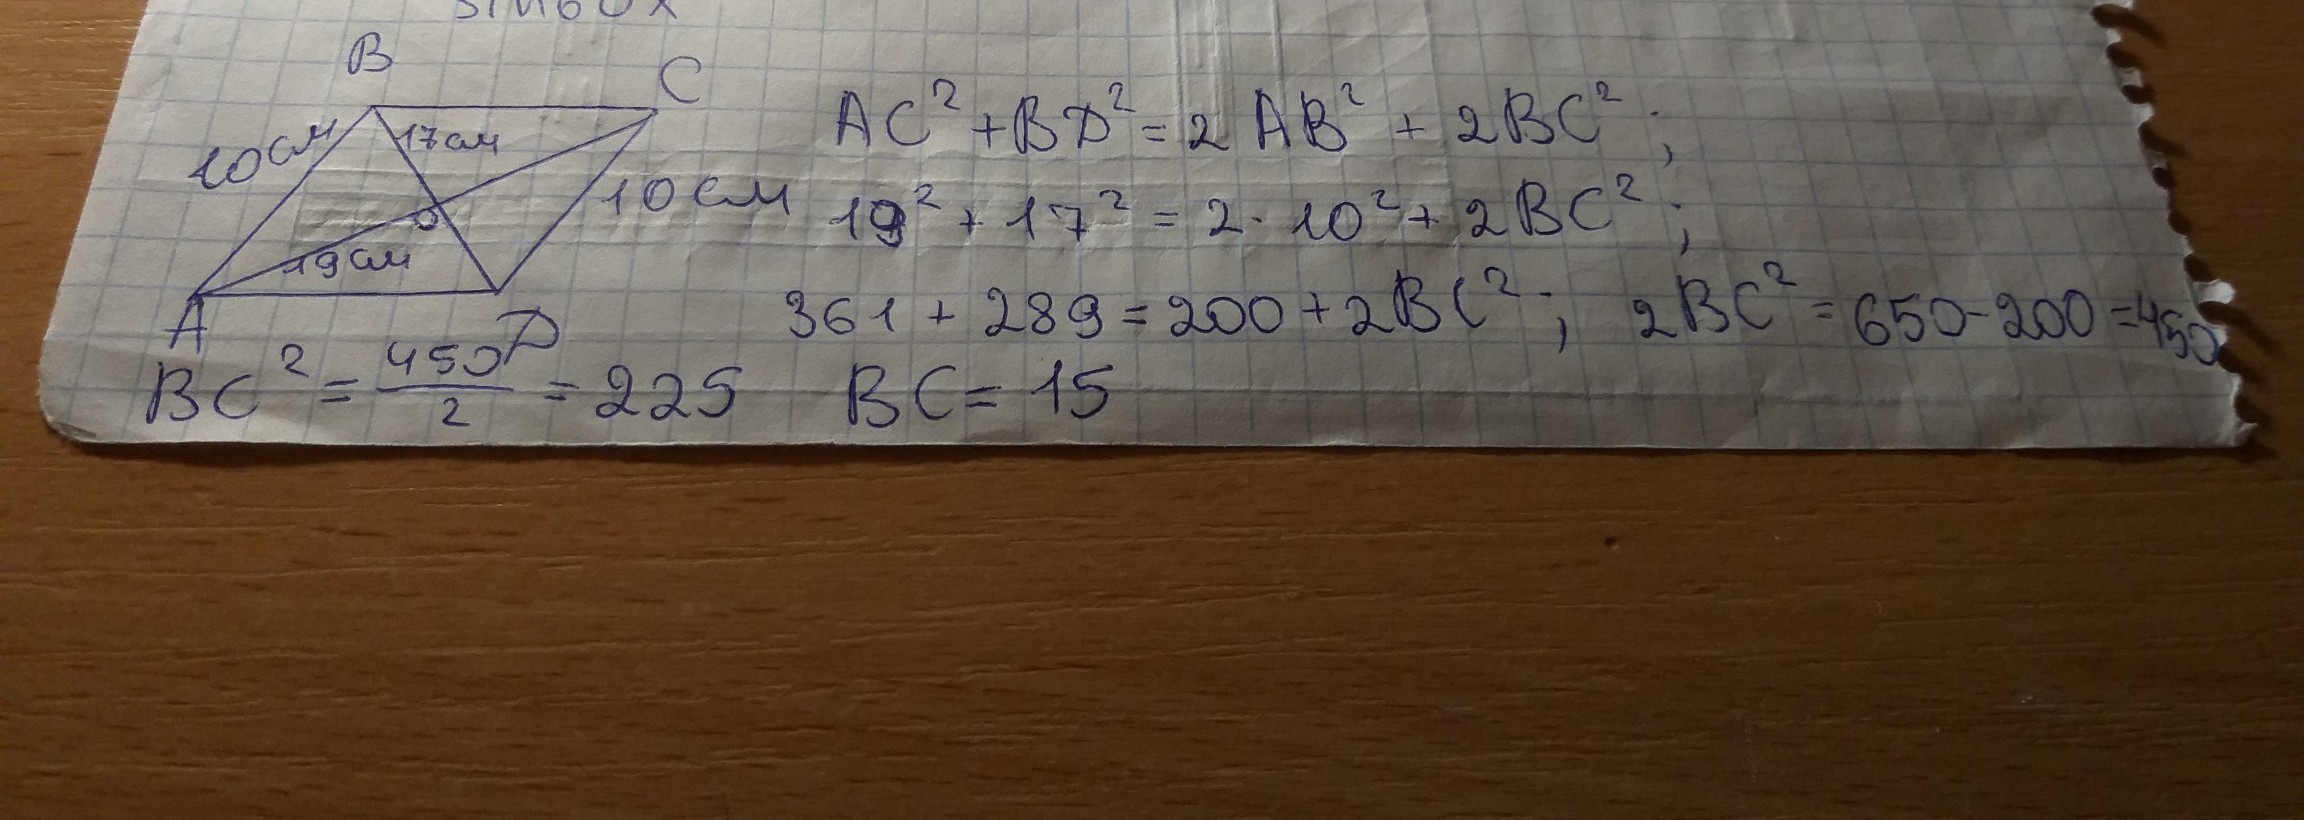 B
C
10см
17см
10см
O
19см
A
D
AC² + BD² = 2 AB² + 2BC²;
19² + 17² = 2 · 10² + 2BC²;
361 + 289 = 200 + 2BC²; 2BC² = 650 - 200 = 450
BC² = 450/2 = 225 BC = 15